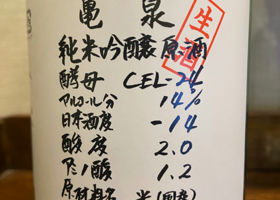 亀泉
生酒
純米吟醸原酒
酵母 CEL-24
アルコール分 14%
日本酒度 -14
酸度 2.0
アミノ酸 1.2
原材料名 米(国産)